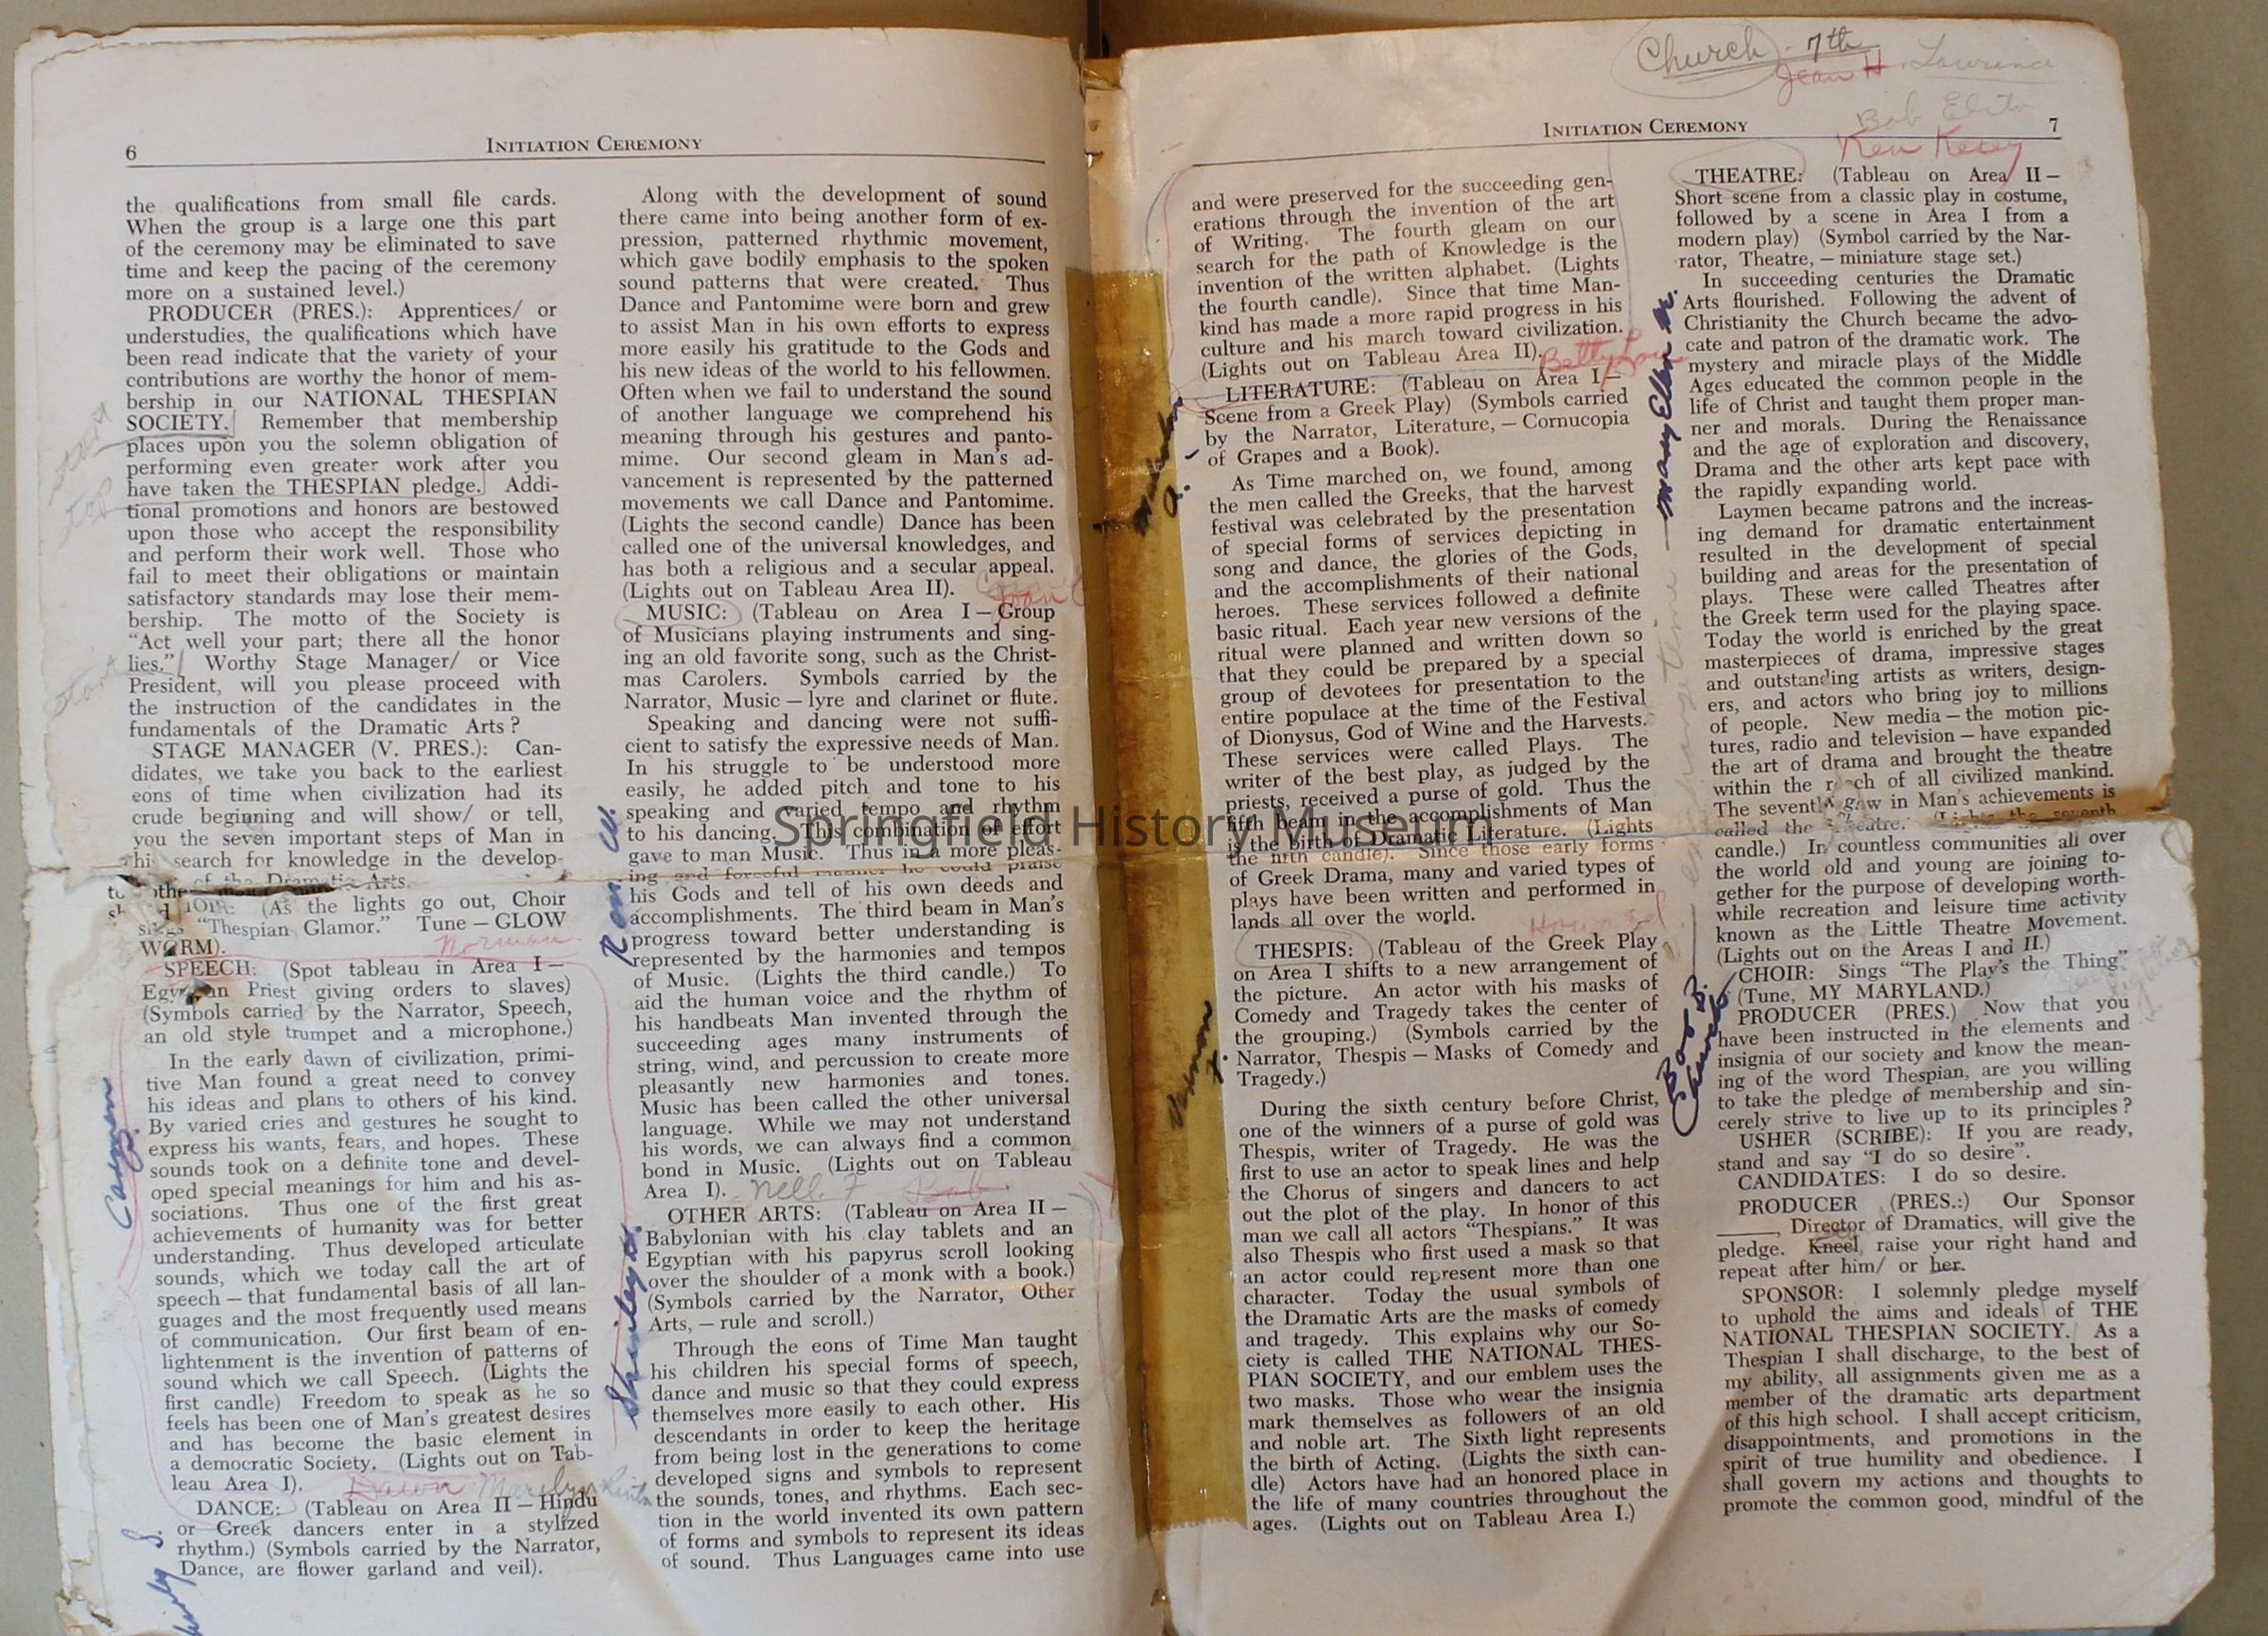 6
INITIATION CEREMONY
the qualifications from small file cards.
When the group is a large one this part
of the ceremony may be eliminated to save
time and keep the pacing of the ceremony
more on a sustained level.)
PRODUCER (PRES.): Apprentices/ or
understudies, the qualifications which have
been read indicate that the variety of your
contributions are worthy the honor of mem-
bership in our NATIONAL THESPIAN
SOCIETY. Remember that membership
places upon you the solemn obligation of
performing even greater work after you
have taken the THESPIAN pledge. Addi-
tional promotions and honors are bestowed
upon those who accept the responsibility
and perform their work well. Those who
fail to meet their obligations or maintain
satisfactory standards may lose their mem-
bership. The motto of the Society is
“Act well your part; there all the honor
lies.” Worthy Stage Manager/ or Vice
President, will you please proceed with
the instruction of the candidates in the
fundamentals of the Dramatic Arts?
STAGE MANAGER (V. PRES.): Can-
didates, we take you back to the earliest
eons of time when civilization had its
crude beginning and will show/ or tell,
you the seven important steps of Man in
his search for knowledge in the develop-
of the Dramatic Arts.
(As the lights go out, Choir
“Thespian Glamor.” Tune — GLOW
WORM).
Norman
SPEECH: (Spot tableau in Area I —
Egyptian Priest giving orders to slaves)
(Symbols carried by the Narrator, Speech,
an old style trumpet and a microphone.)
In the early dawn of civilization, primi-
tive Man found a great need to convey
his ideas and plans to others of his kind.
By varied cries and gestures he sought to
express his wants, fears, and hopes. These
sounds took on a definite tone and devel-
oped special meanings for him and his as-
sociations. Thus one of the first great
achievements of humanity was for better
understanding. Thus developed articulate
sounds, which we today call the art of
speech — that fundamental basis of all lan-
guages and the most frequently used means
of communication. Our first beam of en-
lightenment is the invention of patterns of
sound which we call Speech. (Lights the
first candle) Freedom to speak as he so
feels has been one of Man's greatest desires
and has become the basic element in
a democratic Society. (Lights out on Tab-
leau Area I).
Dawn Marilyn
DANCE: (Tableau on Area II — Hindu
or Greek dancers enter in a stylized
rhythm.) (Symbols carried by the Narrator,
Dance, are flower garland and veil).
start
stop
start
Carmen
S.
Along with the development of sound
there came into being another form of ex-
pression, patterned rhythmic movement,
which gave bodily emphasis to the spoken
sound patterns that were created. Thus
Dance and Pantomime were born and grew
to assist Man in his own efforts to express
more easily his gratitude to the Gods and
his new ideas of the world to his fellowmen.
Often when we fail to understand the sound
of another language we comprehend his
meaning through his gestures and panto-
mime. Our second gleam in Man's ad-
vancement is represented by the patterned
movements we call Dance and Pantomime.
(Lights the second candle) Dance has been
called one of the universal knowledges, and
has both a religious and a secular appeal.
(Lights out on Tableau Area II).
Joan C
MUSIC: (Tableau on Area I — Group
of Musicians playing instruments and sing-
ing an old favorite song, such as the Christ-
mas Carolers. Symbols carried by the
Narrator, Music — lyre and clarinet or flute.
Speaking and dancing were not suffi-
cient to satisfy the expressive needs of Man.
In his struggle to be understood more
easily, he added pitch and tone to his
speaking and varied tempo and rhythm
to his dancing. This combination of effort
gave to man Music. Thus in a more pleas-
ing and forceful manner he could praise
his Gods and tell of his own deeds and
accomplishments. The third beam in Man's
progress toward better understanding is
represented by the harmonies and tempos
of Music. (Lights the third candle.) To
aid the human voice and the rhythm of
his handbeats Man invented through the
succeeding ages many instruments of
string, wind, and percussion to create more
pleasantly new harmonies and tones.
Music has been called the other universal
language. While we may not understand
his words, we can always find a common
bond in Music. (Lights out on Tableau
Area I).
Nell F Bob
OTHER ARTS: (Tableau on Area II —
Babylonian with his clay tablets and an
Egyptian with his papyrus scroll looking
over the shoulder of a monk with a book.)
(Symbols carried by the Narrator, Other
Arts, — rule and scroll.)
Through the eons of Time Man taught
his children his special forms of speech,
dance and music so that they could express
themselves more easily to each other. His
descendants in order to keep the heritage
from being lost in the generations to come
developed signs and symbols to represent
the sounds, tones, and rhythms. Each sec-
tion in the world invented its own pattern
of forms and symbols to represent its ideas
of sound. Thus Languages came into use
Ron W.
Shirley
Church - 7th
Jean H. Lawrence
Bob
Ken Kesey
INITIATION CEREMONY
7
and were preserved for the succeeding gen-
erations through the invention of the art
of Writing. The fourth gleam on our
search for the path of Knowledge is the
invention of the written alphabet. (Lights
the fourth candle). Since that time Man-
kind has made a more rapid progress in his
culture and his march toward civilization.
(Lights out on Tableau Area II).
Betty Lou
LITERATURE: (Tableau on Area I —
Scene from a Greek Play) (Symbols carried
by the Narrator, Literature, — Cornucopia
of Grapes and a Book).
As Time marched on, we found, among
the men called the Greeks, that the harvest
festival was celebrated by the presentation
of special forms of services depicting in
song and dance, the glories of the Gods,
and the accomplishments of their national
heroes. These services followed a definite
basic ritual. Each year new versions of the
ritual were planned and written down so
that they could be prepared by a special
group of devotees for presentation to the
entire populace at the time of the Festival
of Dionysus, God of Wine and the Harvests.
These services were called Plays. The
writer of the best play, as judged by the
priests, received a purse of gold. Thus the
fifth beam in the accomplishments of Man
is the birth of Dramatic Literature. (Lights
the fifth candle). Since those early forms
of Greek Drama, many and varied types of
plays have been written and performed in
lands all over the world.
Howard
THESPIS: (Tableau of the Greek Play
on Area I shifts to a new arrangement of
the picture. An actor with his masks of
Comedy and Tragedy takes the center of
the grouping.) (Symbols carried by the
Narrator, Thespis — Masks of Comedy and
Tragedy.)
During the sixth century before Christ,
one of the winners of a purse of gold was
Thespis, writer of Tragedy. He was the
first to use an actor to speak lines and help
the Chorus of singers and dancers to act
out the plot of the play. In honor of this
man we call all actors “Thespians.” It was
also Thespis who first used a mask so that
an actor could represent more than one
character. Today the usual symbols of
the Dramatic Arts are the masks of comedy
and tragedy. This explains why our So-
ciety is called THE NATIONAL THES-
PIAN SOCIETY, and our emblem uses the
two masks. Those who wear the insignia
mark themselves as followers of an old
and noble art. The Sixth light represents
the birth of Acting. (Lights the sixth can-
dle) Actors have had an honored place in
the life of many countries throughout the
ages. (Lights out on Tableau Area I.)
Vernon
Mary Ellen
Bob B.
THEATRE: (Tableau on Area II —
Short scene from a classic play in costume,
followed by a scene in Area I from a
modern play) (Symbol carried by the Nar-
rator, Theatre, — miniature stage set.)
In succeeding centuries the Dramatic
Arts flourished. Following the advent of
Christianity the Church became the advo-
cate and patron of the dramatic work. The
mystery and miracle plays of the Middle
Ages educated the common people in the
life of Christ and taught them proper man-
ner and morals. During the Renaissance
and the age of exploration and discovery,
Drama and the other arts kept pace with
the rapidly expanding world.
Laymen became patrons and the increas-
ing demand for dramatic entertainment
resulted in the development of special
building and areas for the presentation of
plays. These were called Theatres after
the Greek term used for the playing space.
Today the world is enriched by the great
masterpieces of drama, impressive stages
and outstanding artists as writers, design-
ers, and actors who bring joy to millions
of people. New media — the motion pic-
tures, radio and television — have expanded
the art of drama and brought the theatre
within the reach of all civilized mankind.
The seventh glow in Man's achievements is
called the Theatre. (Lights the seventh
candle.) In countless communities all over
the world old and young are joining to-
gether for the purpose of developing worth-
while recreation and leisure time activity
known as the Little Theatre Movement.
(Lights out on the Areas I and II.)
CHOIR: Sings “The Play's the Thing”
(Tune, MY MARYLAND.)
PRODUCER (PRES.) Now that you
have been instructed in the elements and
insignia of our society and know the mean-
ing of the word Thespian, are you willing
to take the pledge of membership and sin-
cerely strive to live up to its principles?
USHER (SCRIBE): If you are ready,
stand and say “I do so desire”.
CANDIDATES: I do so desire.
PRODUCER (PRES.:) Our Sponsor
_____, Director of Dramatics, will give the
pledge. Kneel, raise your right hand and
repeat after him/ or her.
SPONSOR: I solemnly pledge myself
to uphold the aims and ideals of THE
NATIONAL THESPIAN SOCIETY. As a
Thespian I shall discharge, to the best of
my ability, all assignments given me as a
member of the dramatic arts department
of this high school. I shall accept criticism,
disappointments, and promotions in the
spirit of true humility and obedience. I
shall govern my actions and thoughts to
promote the common good, mindful of the
Springfield History Museum